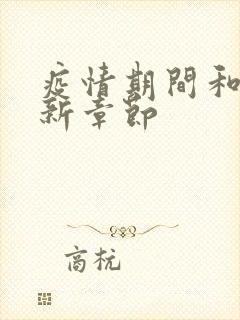 疫情期間和
新章節
商杬